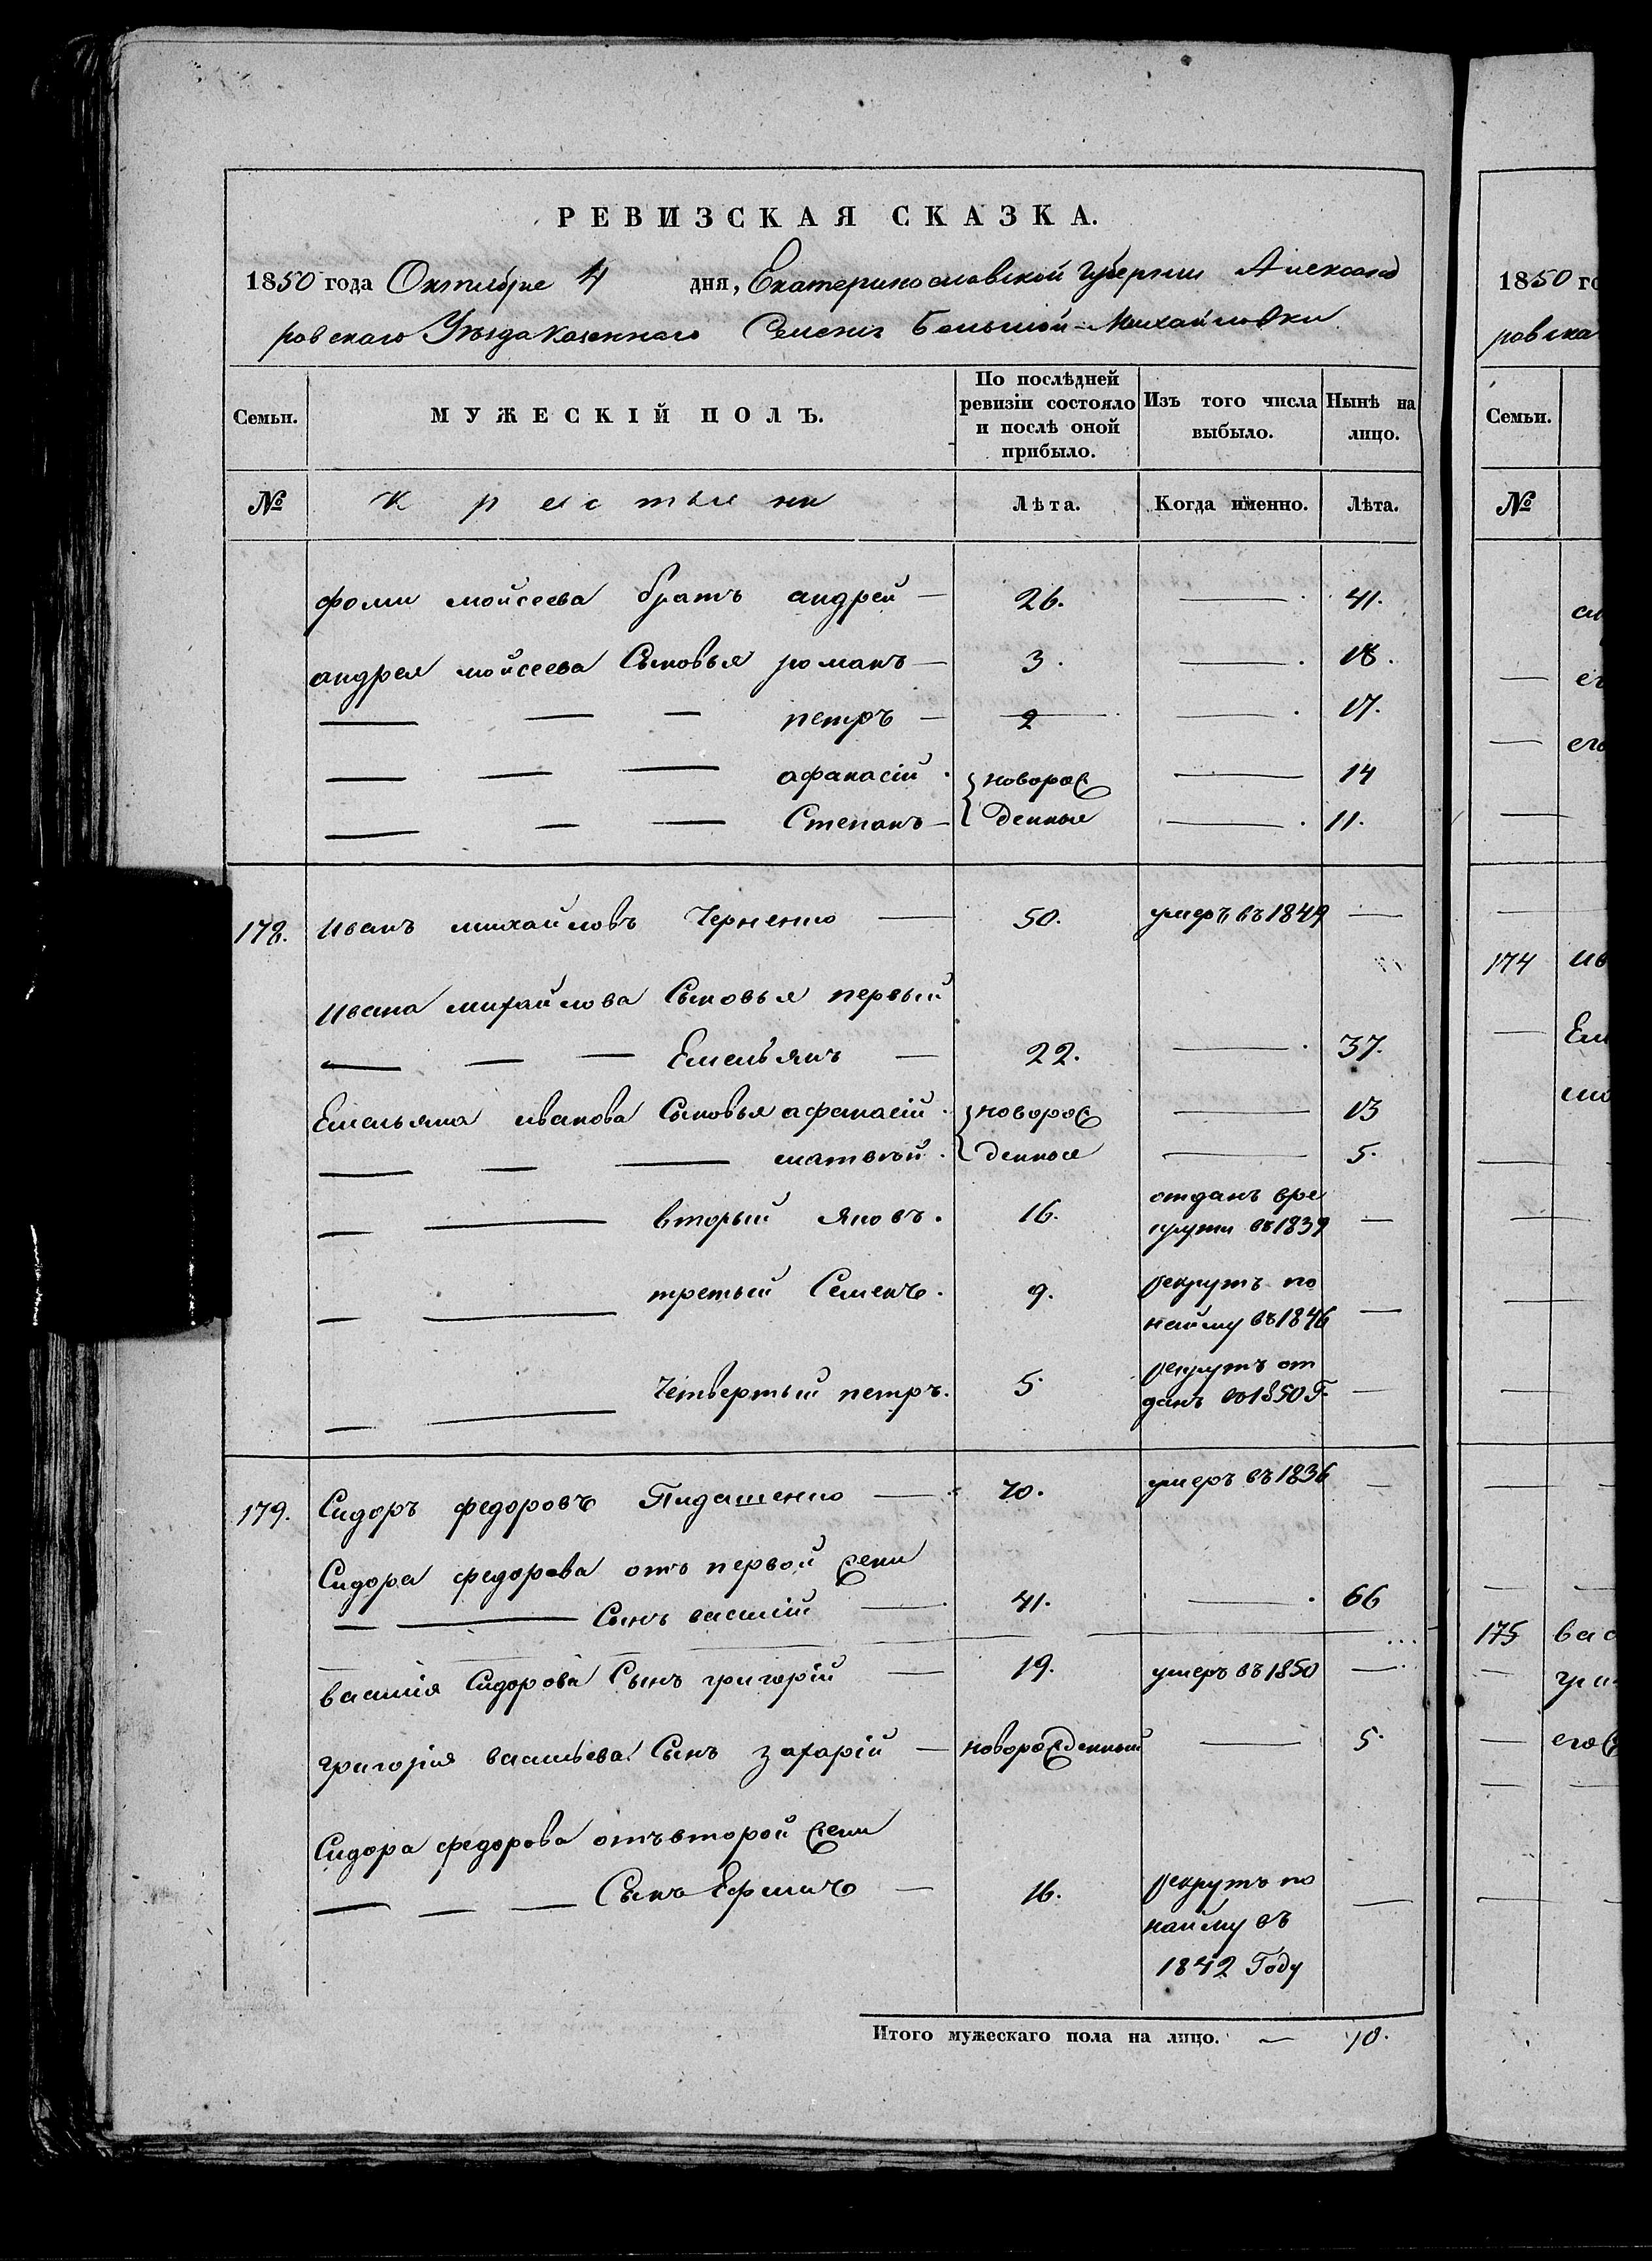 РЕВИЗСКАЯ СКАЗКА.
1850 года Октября 4 дня, Екатеринославской губернии Александ
ровскаго Уѣзда Казеннаго Селенія Большой-Михайловки
Семьи. МУЖЕСКІЙ ПОЛЪ. По послѣдней ревизіи состояло и послѣ оной прибыло. Изъ того числа выбыло. Нынѣ на лицо.
№ крестьяне Лѣта. Когда именно. Лѣта.
фомы мойсеева братъ андрей — 26. — 41.
андрея мойсеева Сыновья романъ — 3. — 18.
— — — петръ — 2 — 17.
— — — афанасій. новорож — 14
— — — Степанъ — денные — 11.
178. Иванъ михайловъ Черненко — 50. умеръ въ 1849 —
Ивана михайлова Сыновья первый
— — — Емельянъ — 22. — 37.
Емельяна иванова Сыновья афанасій. новорож — 13
— — — матвѣй. денные — 5.
— — вторый Яковъ. 16. отданъ вре
круты въ 1839 —
— — третый Семенъ. 9. рекрутъ по
найму въ 1846 —
— — Четвертый петръ. 5. рекрутъ от
данъ въ 1850 Г. —
179. Сидоръ федоровъ Пидашенко — 70. умеръ въ 1836 —
Сидора федорова отъ первой жены
— — Сынъ василій — 41. — 66
василія Сидорова Сынъ григорій — 19. умеръ въ 1850 —
григорія васильева Сынъ захарій — новорожденный — 5.
Сидора федорова отъ второй жены
— — — Сынъ Ефимъ — 16. рекрутъ по —
найму въ
1842 Году
Итого мужескаго пола на лицо. — 10.
1850 го
ровска
Семьи.
№
174 ив
Ем
175 вас
его